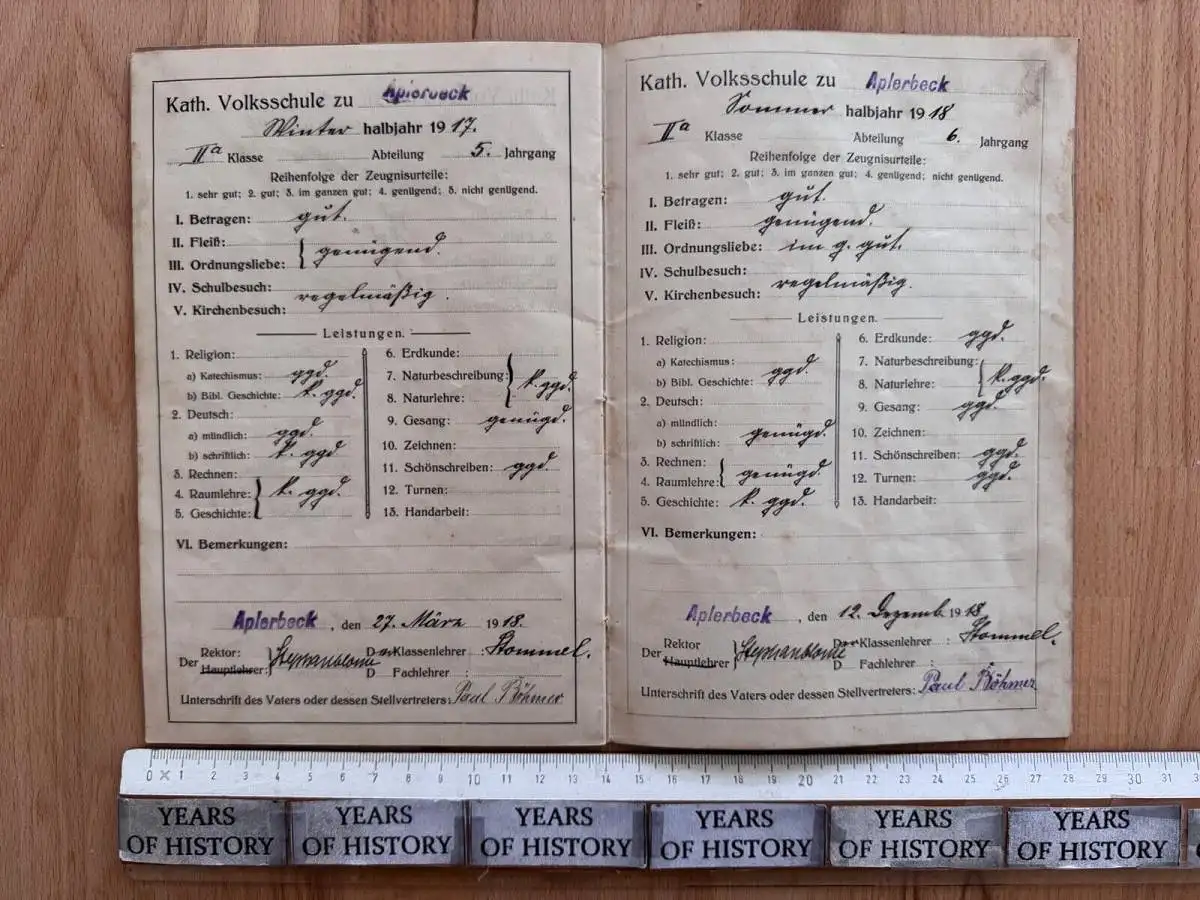 Kath. Volksschule zu Aplerbeck
Winter halbjahr 1917.
IIa Klasse Abteilung 5. Jahrgang
Reihenfolge der Zeugnisurteile:
1. sehr gut; 2. gut; 3. im ganzen gut; 4. genügend; 5. nicht genügend.
I. Betragen: gut.
II. Fleiß:
III. Ordnungsliebe: genügend.
IV. Schulbesuch:
V. Kirchenbesuch: regelmäßig.
Leistungen.
1. Religion:
a) Katechismus: ggd.
b) Bibl. Geschichte: k. ggd.
2. Deutsch:
a) mündlich: ggd.
b) schriftlich: k. ggd
3. Rechnen:
4. Raumlehre: k. ggd.
5. Geschichte:
6. Erdkunde:
7. Naturbeschreibung:
8. Naturlehre: k. ggd.
9. Gesang: genügd.
10. Zeichnen:
11. Schönschreiben: ggd.
12. Turnen:
13. Handarbeit:
VI. Bemerkungen:
Aplerbeck, den 27. März 1918.
Der Rektor: Hauptlehrer: Stephanblome Der Klassenlehrer: Stommel.
D Fachlehrer:
Unterschrift des Vaters oder dessen Stellvertreters: Paul Böhmer
Kath. Volksschule zu Aplerbeck
Sommer halbjahr 1918
IIa Klasse Abteilung 6. Jahrgang
Reihenfolge der Zeugnisurteile:
1. sehr gut; 2. gut; 3. im ganzen gut; 4. genügend; nicht genügend.
I. Betragen: gut.
II. Fleiß: genügend.
III. Ordnungsliebe: im g. gut.
IV. Schulbesuch:
V. Kirchenbesuch: regelmäßig.
Leistungen.
1. Religion:
a) Katechismus:
b) Bibl. Geschichte: ggd.
2. Deutsch:
a) mündlich:
b) schriftlich: genügd.
3. Rechnen:
4. Raumlehre: genügd.
5. Geschichte: k. ggd.
6. Erdkunde: ggd.
7. Naturbeschreibung:
8. Naturlehre: k. ggd.
9. Gesang: ggd.
10. Zeichnen:
11. Schönschreiben: ggd.
12. Turnen: ggd.
13. Handarbeit:
VI. Bemerkungen:
Aplerbeck, den 12. Dezemb. 1918
Der Rektor Hauptlehrer Stephanblome Der Klassenlehrer: Stommel.
D Fachlehrer:
Unterschrift des Vaters oder dessen Stellvertreters: Paul Böhmer
0 1 2 3 4 5 6 7 8 9 10 11 12 13 14 15 16 17 18 19 20 21 22 23 24 25 26 27 28 29 30 31
YEARS OF HISTORY
YEARS OF HISTORY
YEARS OF HISTORY
YEARS OF HISTORY
YEARS OF HISTORY
YEARS OF HISTORY